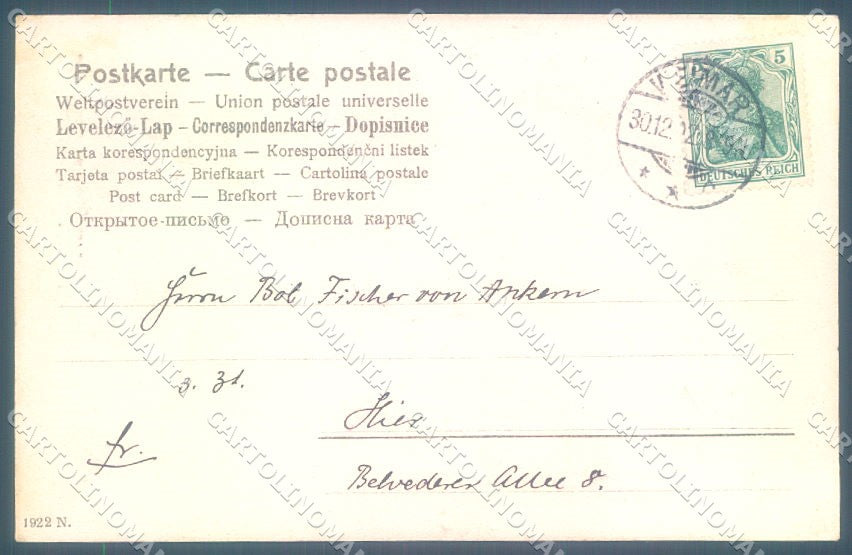 Postkarte — Carte postale
Weltpostverein — Union postale universelle
Levelező-Lap – Correspondenzkarte – Dopisnice
Karta korespondencyjna — Korespondenční listek
Tarjeta postal — Briefkaart — Cartolina postale
Post card — Brefkort — Brevkort
Открытое-письмо — Дописна карта
5
DEUTSCHES REICH
WEIMAR
30.12.02
Herrn Bob Fischer von Ankern
z. Zt.
Hier
fr.
Belvederer Allee 8.
1922 N.
CARTOLINOMANIA